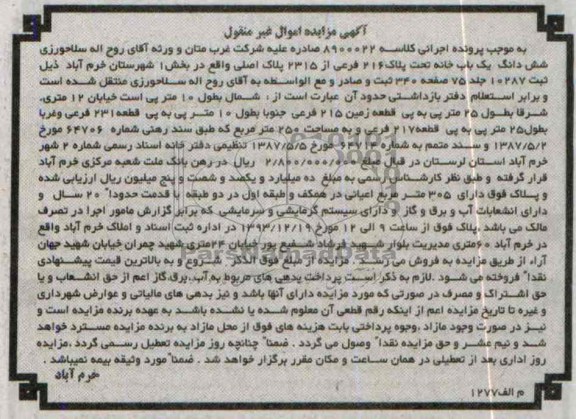 آگهی مزایده اموال غیر منقول
به موجب پرونده اجرائی کلاسه ۸۹۰۰۰۲۲ صادره علیه شرکت غرب متان و ورثه آقای روح اله سلاحورزی
شش دانگ یک باب خانه تحت پلاک ۲۱۶ فرعی از ۲۳۱۵ پلاک اصلی واقع در بخش۱ شهرستان خرم آباد ذیل
ثبت ۱۰۲۸۷ جلد ۷۵ صفحه ۳۴۰ ثبت و صادر و مع الواسطه به آقای روح اله سلاحورزی منتقل شده است
و برابر استعلام دفتر بازداشتی حدود آن عبارت است از : شمال بطول ۱۰ متر پی است خیابان ۱۲ متری.
شرقا بطول ۲۵ متر پی به پی قطعه زمین ۲۱۵ فرعی جنوبا بطول ۱۰ متر پی به پی قطعه ۲۳۱ فرعی وغربا
بطول۲۵ متر پی به پی قطعه۲۱۷ فرعی و به مساحت ۲۵۰ متر مربع که طبق سند رهنی شماره ۶۴۷۰۶ مورخ
۱۳۸۷/۵/۲ و سند متمم به شماره مورخ ۱۳۸۷/۵/۵ تنظیمی دفتر خانه اسناد رسمی شماره ۲ شهر
خرم آباد استان لرستان در قبال مبلغ ۲/۸۰۰/۰۰۰/۰۰۰ ریال در رهن بانک ملت شعبه مرکزی خرم آباد
قرار گرفته و طبق نظر کارشناس رسمی به مبلغ ده میلیارد و یکصد و شصت و پنج میلیون ریال ارزیابی شده
و پلاک فوق دارای ۳۰۵ متر مربع اعیانی در همکف و طبقه اول در دو طبقه با قدمت حدودا" ۲۰ سال و
دارای انشعابات آب و برق و گاز و دارای سیستم گرمایشی و سرمایشی که برابر گزارش مامور اجرا در تصرف
مالک می باشد پلاک فوق از ساعت ۹ الی ۱۲ مورخ ۱۳۹۳/۱۲/۱۹ در اداره ثبت اسناد و املاک خرم آباد واقع
در خرم آباد ۶۰متری مدیریت بلوار شهید فرشاد شفیع پور خیابان ۲۴متری شهید چمران خیابان شهید جهان
آراء از طریق مزایده به فروش می رسد مزایده از مبلغ فوق الذکر شروع و به بالاترین قیمت پیشنهادی
نقدا" فروخته می شود .لازم به ذکر است پرداخت بدهی های مربوط به آب،برق،گاز اعم از حق انشعاب و یا
حق اشتراک و مصرف در صورتی که مورد مزایده دارای آنها باشد و نیز بدهی های مالیاتی و عوارض شهرداری
و غیره تا تاریخ مزایده اعم از اینکه رقم قطعی آن معلوم شده یا نشده باشد به عهده برنده مزایده است و
نیز در صورت وجود مازاد ،وجوه پرداختی بابت هزینه های فوق از محل مازاد به برنده مزایده مسترد خواهد
شد و نیم عشر و حق مزایده نقدا" وصول می گردد . ضمنا" چنانچه روز مزایده تعطیل رسمی گردد ،مزایده
روز اداری بعد از تعطیلی در همان ساعت و مکان مقرر برگزار خواهد شد . ضمنا" مورد وثیقه بیمه نمیباشد .
خرم آباد
م الف۱۲۷۷